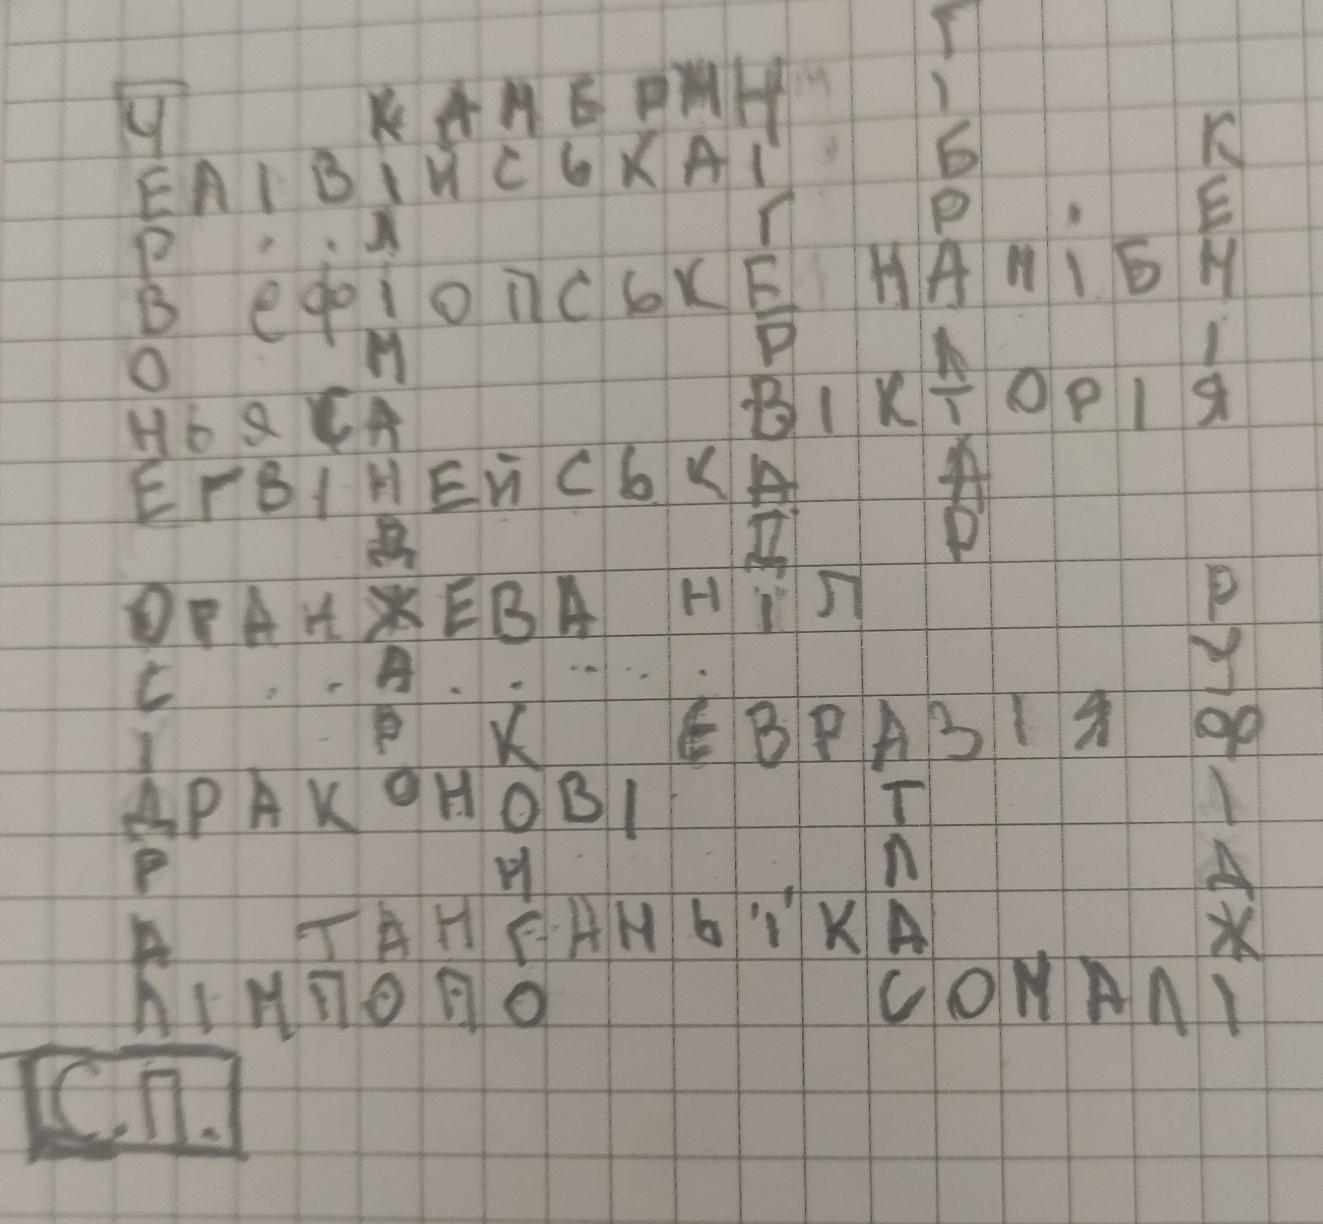 Г
І
Ч К А М Е Р М Н
К
Е Л І В І Й С Ь К А І Б
Р Л Г Р Е
В е ф і О П С Ь К Е Н А М І Б М
О М Р Л І
Н Ь Я С А В І К Т О Р І Я
Е Г В І Н Е Й С Ь К А А
Д Д Р
О Р А Н Ж Е В А Н І Л Р
С А У
І Р К Є В Р А З І Я Ф
Д Р А К О Н О В І Т І
Р Н Л Д
А Т А Н Г А Н Ь Ї К А Ж
Л І М П О П О С О М А Л І
С.П.